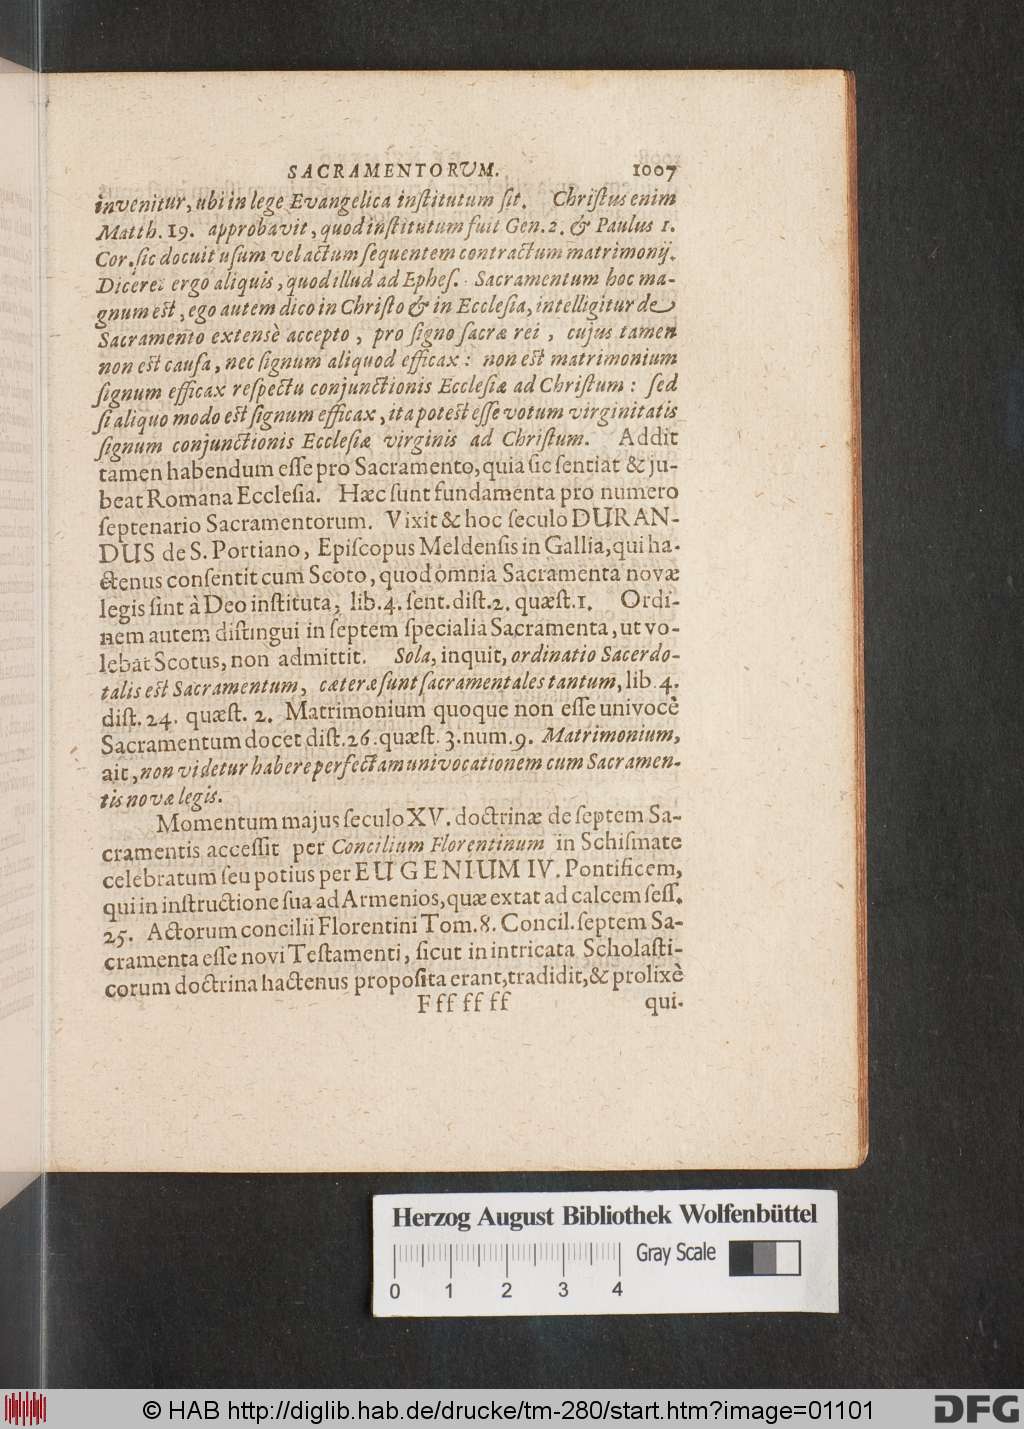 SACRAMENTORUM. 1007
invenitur, ubi in lege Evangelica institutum sit. Christus enim
Matth. 19. approbavit, quod institutum fuit Gen. 2. & Paulus 1.
Cor. sic docuit usum vel actum sequentem contractum matrimonij.
Diceret ergo aliquis, quod illud ad Ephes. Sacramentum hoc ma-
gnum est, ego autem dico in Christo & in Ecclesia, intelligitur de
Sacramento extensè accepto, pro signo sacræ rei, cujus tamen
non est causa, nec signum aliquod efficax: non est matrimonium
signum efficax respectu conjunctionis Ecclesiæ ad Christum: sed
si aliquo modo est signum efficax, ita potest esse votum virginitatis
signum conjunctionis Ecclesiæ virginis ad Christum. Addit
tamen habendum esse pro Sacramento, quia sic sentiat & ju-
beat Romana Ecclesia. Hæc sunt fundamenta pro numero
septenario Sacramentorum. Vixit & hoc seculo DURAN-
DUS de S. Portiano, Episcopus Meldensis in Gallia, qui ha-
ctenus consentit cum Scoto, quod omnia Sacramenta novæ
legis sint à Deo instituta, lib. 4. sent. dist. 2. quæst. 1. Ordi-
nem autem distingui in septem specialia Sacramenta, ut vo-
lebat Scotus, non admittit. Sola, inquit, ordinatio Sacerdo-
talis est Sacramentum, cæteræ sunt sacramentales tantum, lib. 4.
dist. 24. quæst. 2. Matrimonium quoque non esse univocè
Sacramentum docet dist. 26. quæst. 3. num. 9. Matrimonium,
ait, non videtur habere perfectam univocationem cum Sacramen-
tis novæ legis.
Momentum majus seculo XV. doctrinæ de septem Sa-
cramentis accessit per Concilium Florentinum in Schismate
celebratum seu potius per EUGENIUM IV. Pontificem,
qui in instructione sua ad Armenios, quæ extat ad calcem sess.
25. Actorum concilii Florentini Tom. 8. Concil. septem Sa-
cramenta esse novi Testamenti, sicut in intricata Scholasti-
corum doctrina hactenus proposita erant, tradidit, & prolixè
F ff ff ff qui-
Herzog August Bibliothek Wolfenbüttel
Gray Scale
0 1 2 3 4
© HAB http://diglib.hab.de/drucke/tm-280/start.htm?image=01101 DFG